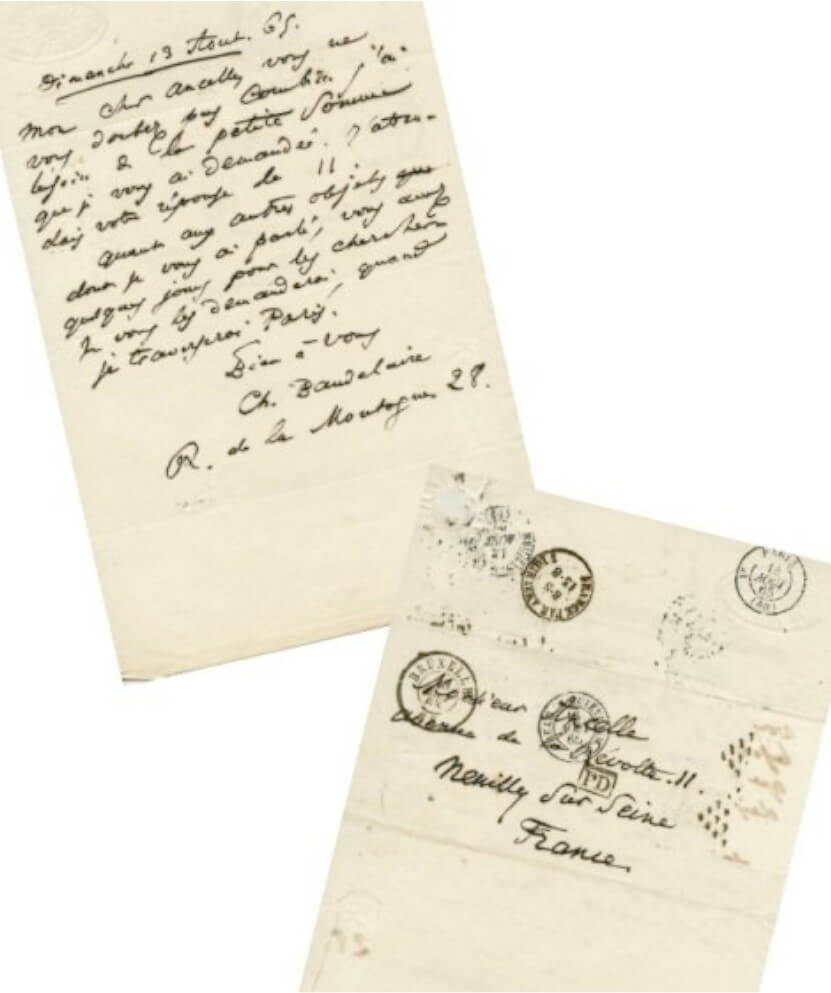 Dimanche 13 Aout. 65.
mon cher Ancelle, vous ne
vous doutez pas combien j'ai
besoin de la petite somme
que je vous ai demandée. J'atten-
dais votre réponse le 11.
quant aux autres objets que
dont je vous ai parlé, vous avez
quelques jours pour les chercher.
Je vous les demanderai, quand
je traverserai Paris.
Bien à vous
Ch. Baudelaire
R. de la Montagne 28.
FRANCE PAR
PARIS
BRUXELLES
Monsieur Ancelle
avenue de la Révolte. 11.
PD
Neuilly sur Seine
France.